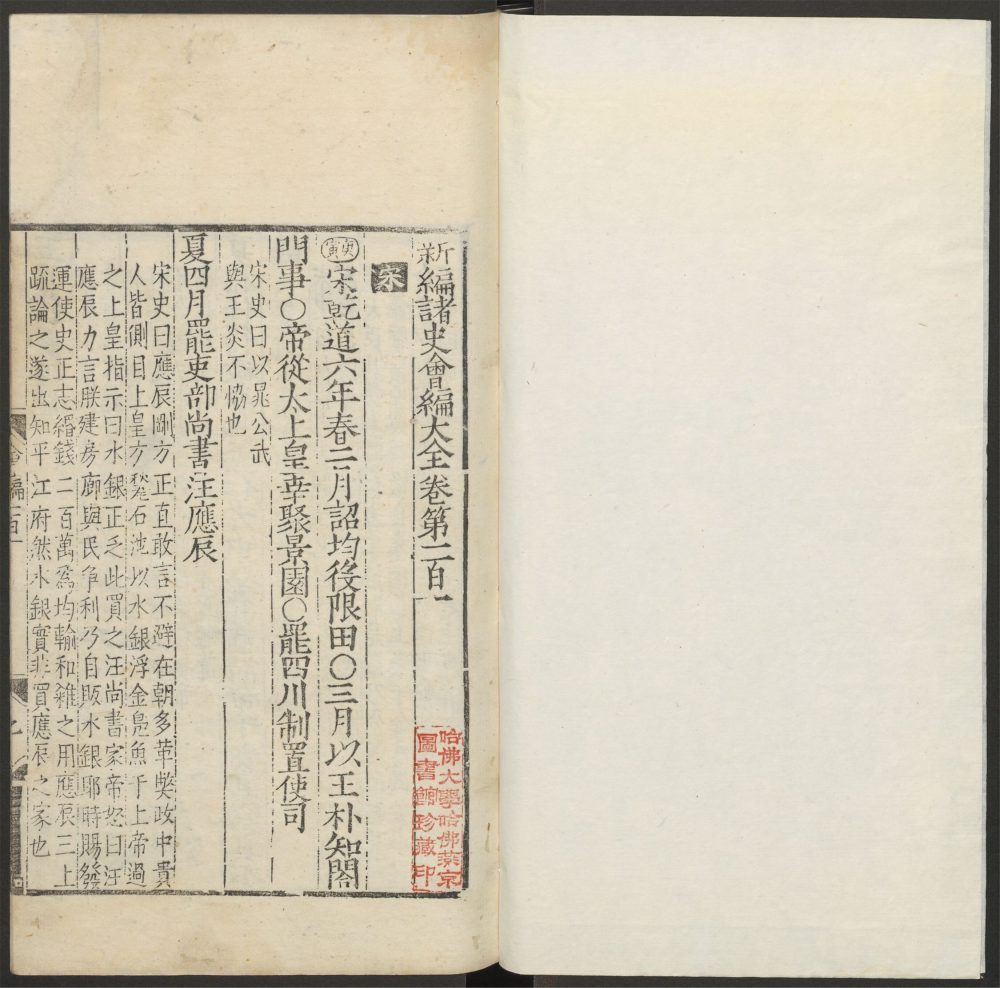 新編諸史會編大全卷第二百一
宋
庚寅宋乾道六年春二月詔均役限田○三月以王朴知閤
門事○帝從太上皇幸聚景園○罷四川制置使司
宋史曰以晁公武
與王炎不恊也
夏四月罷吏部尚書汪應辰
宋史曰應辰剛方正直敢言不避在朝多革獘政中貴
人皆側目上皇方甃石池以水銀浮金鳧魚于上帝過
之上皇指示曰水銀正乏此買之汪尚書家帝怒曰汪
應辰力言朕建房廊與民争利乃自販水銀耶時賜發
運使史正志緡錢二百萬爲均輸和糴之用應辰三上
疏論之遂出知平江府然水銀實非買應辰之家也
會編二百一
哈佛大學哈佛燕京
圖書館珍藏印